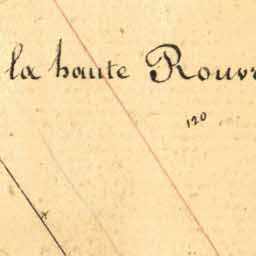 la haute Rouvr
120